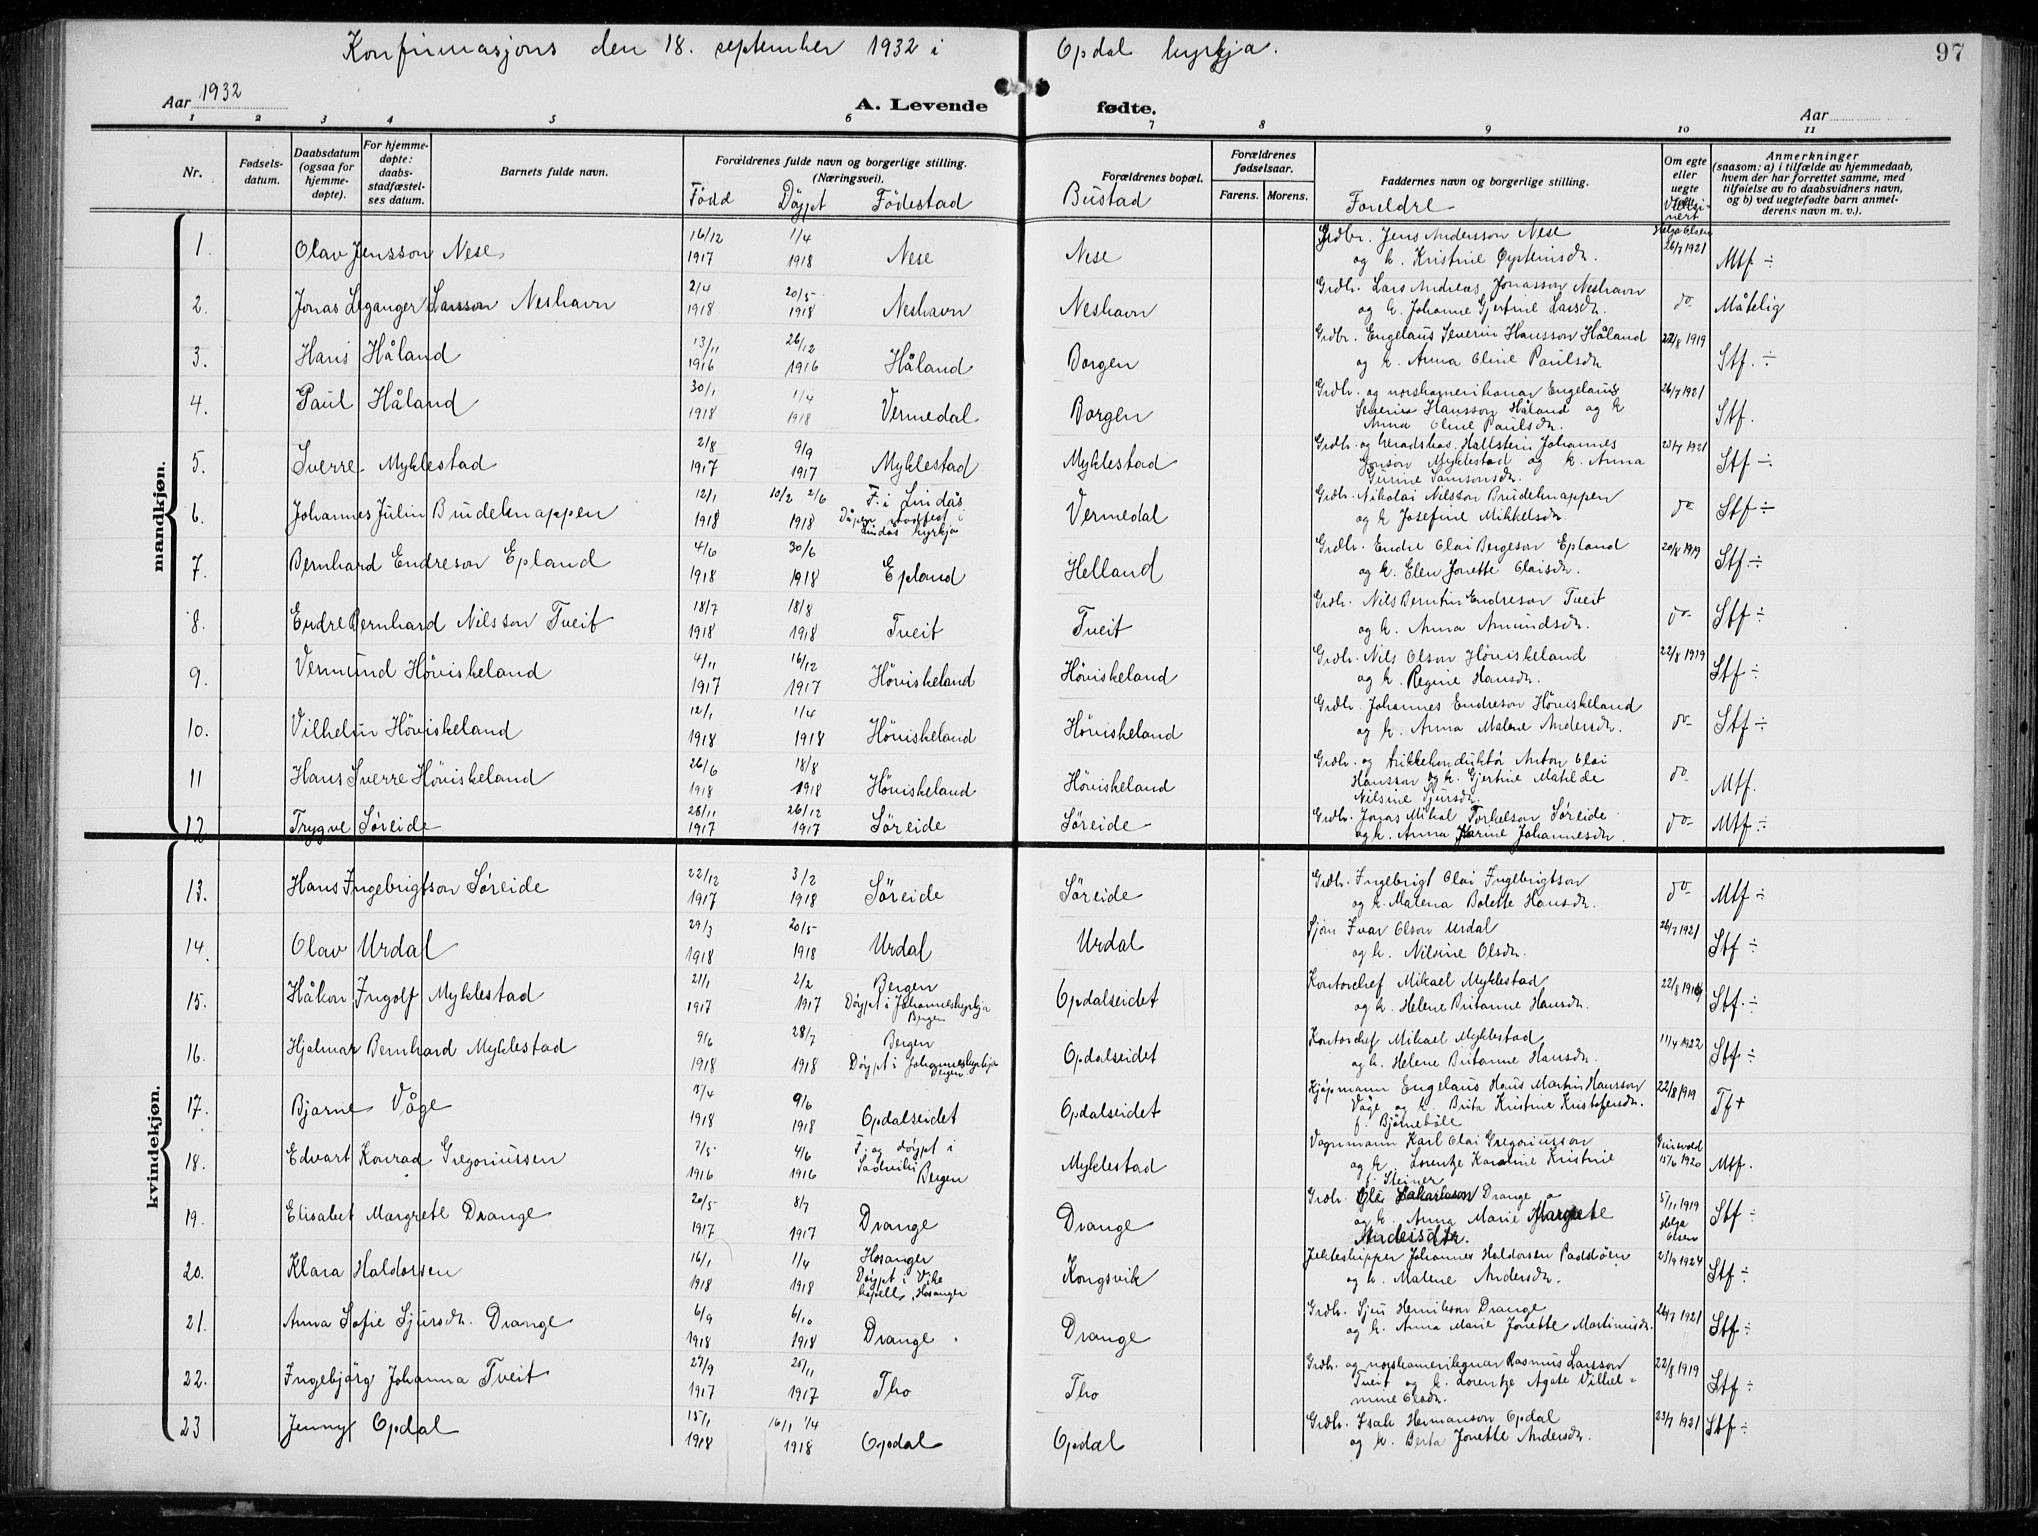 Konfirmasjons den 18. september 1932 i Opdal kyrkja.
97
Aar 1932
A. Levende fødte.
Aar
1 2 3 4 5 6 7 8 9 10 11
Nr.
Fødsels-
datum.
Daabsdatum
(ogsaa for
hjemme-
døpte).
For hjemme-
døpte:
daabs-
stadfæstel-
ses datum.
Barnets fulde navn.
Forældrenes fulde navn og borgerlige stilling.
(Næringsvei).
Forældrenes bopæl.
Forældrenes
fødselsaar.
Farens. Morens.
Faddernes navn og borgerlige stilling.
Om egte
eller
uegte
Anmerkninger
(saasom: a) i tilfælde av hjemmedaab,
hvem der har forrettet samme, med
tilføielse av to daabsvidners navn,
og b) ved uegtefødte barn anmel-
derens navn m. v.).
Fødd Døypt Fødestad Bustad Foreldre
mandkjøn.
kvindekjøn.
1. Olav Jensson Nese 16/12 1917 1/4 1918 Nese Nese Grdbr. Jens Andersson Nese
og k. Kristine Øysteinsdtr. Helga Olsen 26/7 1921 Mtf ÷
2. Jonas Leganger Larsson Neshavn 2/4 1918 20/5 1918 Neshavn Neshavn Grdbr. Lars Andreas Jonasson Neshavn
og k. Johanne Gjertine Larsdtr. do Måtelig
3. Hans Håland 13/11 1916 26/12 1916 Håland Borgen Grdbr. Engelaus Severin Hansson Håland
og k. Anna Oline Paulsdtr. 22/8 1919 Stf. ÷
4. Paul Håland 30/1 1918 1/4 1918 Vermedal Borgen Grdbr. og norskamerikanar Engelaus
Severin Hansson Håland og k
Anna Oline Paulsdtr. 26/7 1921 Stf.
5. Sverre Myklestad 2/8 1917 9/9 1917 Myklestad Myklestad Grdbr. og heradskas. Hallstein Johannes
Jonson Myklestad og k. Anna
Gurine Samsonsdtr. 23/7 1921 Stf ÷
6. Johannes Julin Brudeknappen 12/1 1918 10/2 2/6 1918 F. i Lindås
Dåpen stadfest i
Lindås kyrkja Vermedal Grdbr. Nikolai Nilsson Brudeknappen
og k Josefine Mikkelsdtr. do Stf ÷
7. Bernhard Endreson Epland 4/6 1918 30/6 1918 Epland Helland Grdbr. Endre Olai Bergeson Epland
og k. Elen Jonette Olaisdtr. 20/8 1919 Stf ÷
8. Endre Bernhard Nilsson Tveit 18/7 1918 18/8 1918 Tveit Tveit Grdbr. Nils Berntin Endreson Tveit
og k. Anna Amundsdtr. do Stf ÷
9. Vermund Høviskeland 4/11 1917 16/12 1917 Høviskeland Høviskeland Grdbr. Nils Olson Høviskeland
og k. Regine Hansdtr. 22/8 1919 Stf ÷
10. Vilhelm Høviskeland 12/1 1918 1/4 1918 Høviskeland Høviskeland Grdbr. Johannes Endreson Høviskeland
og k. Anna Malene Andersdtr. do Stf ÷
11 Hans Sverre Høviskeland 26/6 1918 18/8 1918 Høviskeland Høviskeland Grdbr. og trikkekonduktør Anton Olai
Hansson og k. Gjertine Matilde
Nilsine Sjursdtr. do Mtf.
12 Trygve Søreide 28/11 1917 26/12 1917 Søreide Søreide Grdbr. Jonas Mikal Torkelson Søreide
og k. Anna Karine Johannesdtr. do Mtf ÷
13. Hans Ingebrigtson Søreide 22/12 1917 3/2 1918 Søreide Søreide Grdbr. Ingebrigt Olai Ingebrigtson
og k. Malena Bolette Hansdtr. do Mtf ÷
14. Olav Urdal 29/3 1918 20/5 1918 Urdal Urdal Sjøm Ivar Olson Urdal
og k. Nilsine Olsdtr. 26/7 1921 Stf ÷
15. Håkon Ingolf Myklestad 21/1 1917 2/2 1917 Bergen
Døypt i Johanneskyrkja
Bergen Opdalseidet Kontorchef Mikael Myklestad
og k. Helene Britanne Hansdtr. 22/8 1919 Stf. ÷
16. Hjalmar Bernhard Myklestad 9/6 1918 28/7 1918 Bergen
Døypt i Johanneskyrkja
Bergen Opdalseidet Kontorchef Mikael Myklestad
og k. Helene Britanne Hansdtr. 11/4 1922 Stf ÷
17. Bjarne Våge 15/4 1918 9/6 1918 Opdalseidet Opdalseidet Kjøpmann Engelaus Hans Martin Hansson
Våge og k. Brita Kristine Kristofersdtr.
f. Bjørnebøle 22/8 1919 Tf +
18. Edvart Konrad Gregoriussen 7/5 1916 4/6 1916 F. og døypt i
Sadviki
Bergen Myklestad Vognmann Karl Olai Gregoriusson
og k. Lorentze Karoline Kristine
f. Steiner 15/6 1920 Mtf.
19. Elisabet Margrete Drange 20/5 1917 8/7 1917 Drange Drange Grdbr. Ole Drange
og k. Anna Marie Margrete
Andersdtr. 5/11 1919 Helga Olsen Stf ÷
20. Klara Haldorsen 16/1 1918 1/4 1918 Hosanger
Døypt i Vike
kapell, Hosanger Kongsvik Jekteskipper Johannes Haldorsen Paddøen
og k. Malene Andersdtr. 23/9 1924 Stf ÷
21. Anna Sofie Sjursdtr. Drange 6/9 1918 6/10 1918 Drange. Drange Grdbr. Sjur Henrikson Drange
og k. Anna Marie Jonette Martinusdtr. 26/7 1921 Stf ÷
22. Ingebjørg Johanna Tveit 27/9 1917 25/11 1917 Tho Tho Grdbr. og norskamerikanar Rasmus Larsson
Tveit og k. Lorentze Agate Vilhel-
mine Olsdtr. 22/8 1919 Stf ÷
23 Jenny Opdal 15/1 1918 16/1 1/4 1918 Opdal Opdal Grdbr. Isak Hermanson Opdal
og k. Berta Jonette Andersdtr. 23/7 1921 Stf ÷